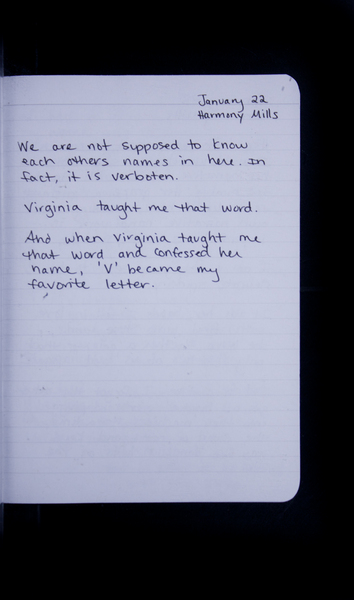 January 22
Harmony Mills
We are not supposed to know
each others names in here. In
fact, it is verboten.
Virginia taught me that word.
And when Virginia taught me
that word and confessed her
name, 'V' became my
favorite letter.